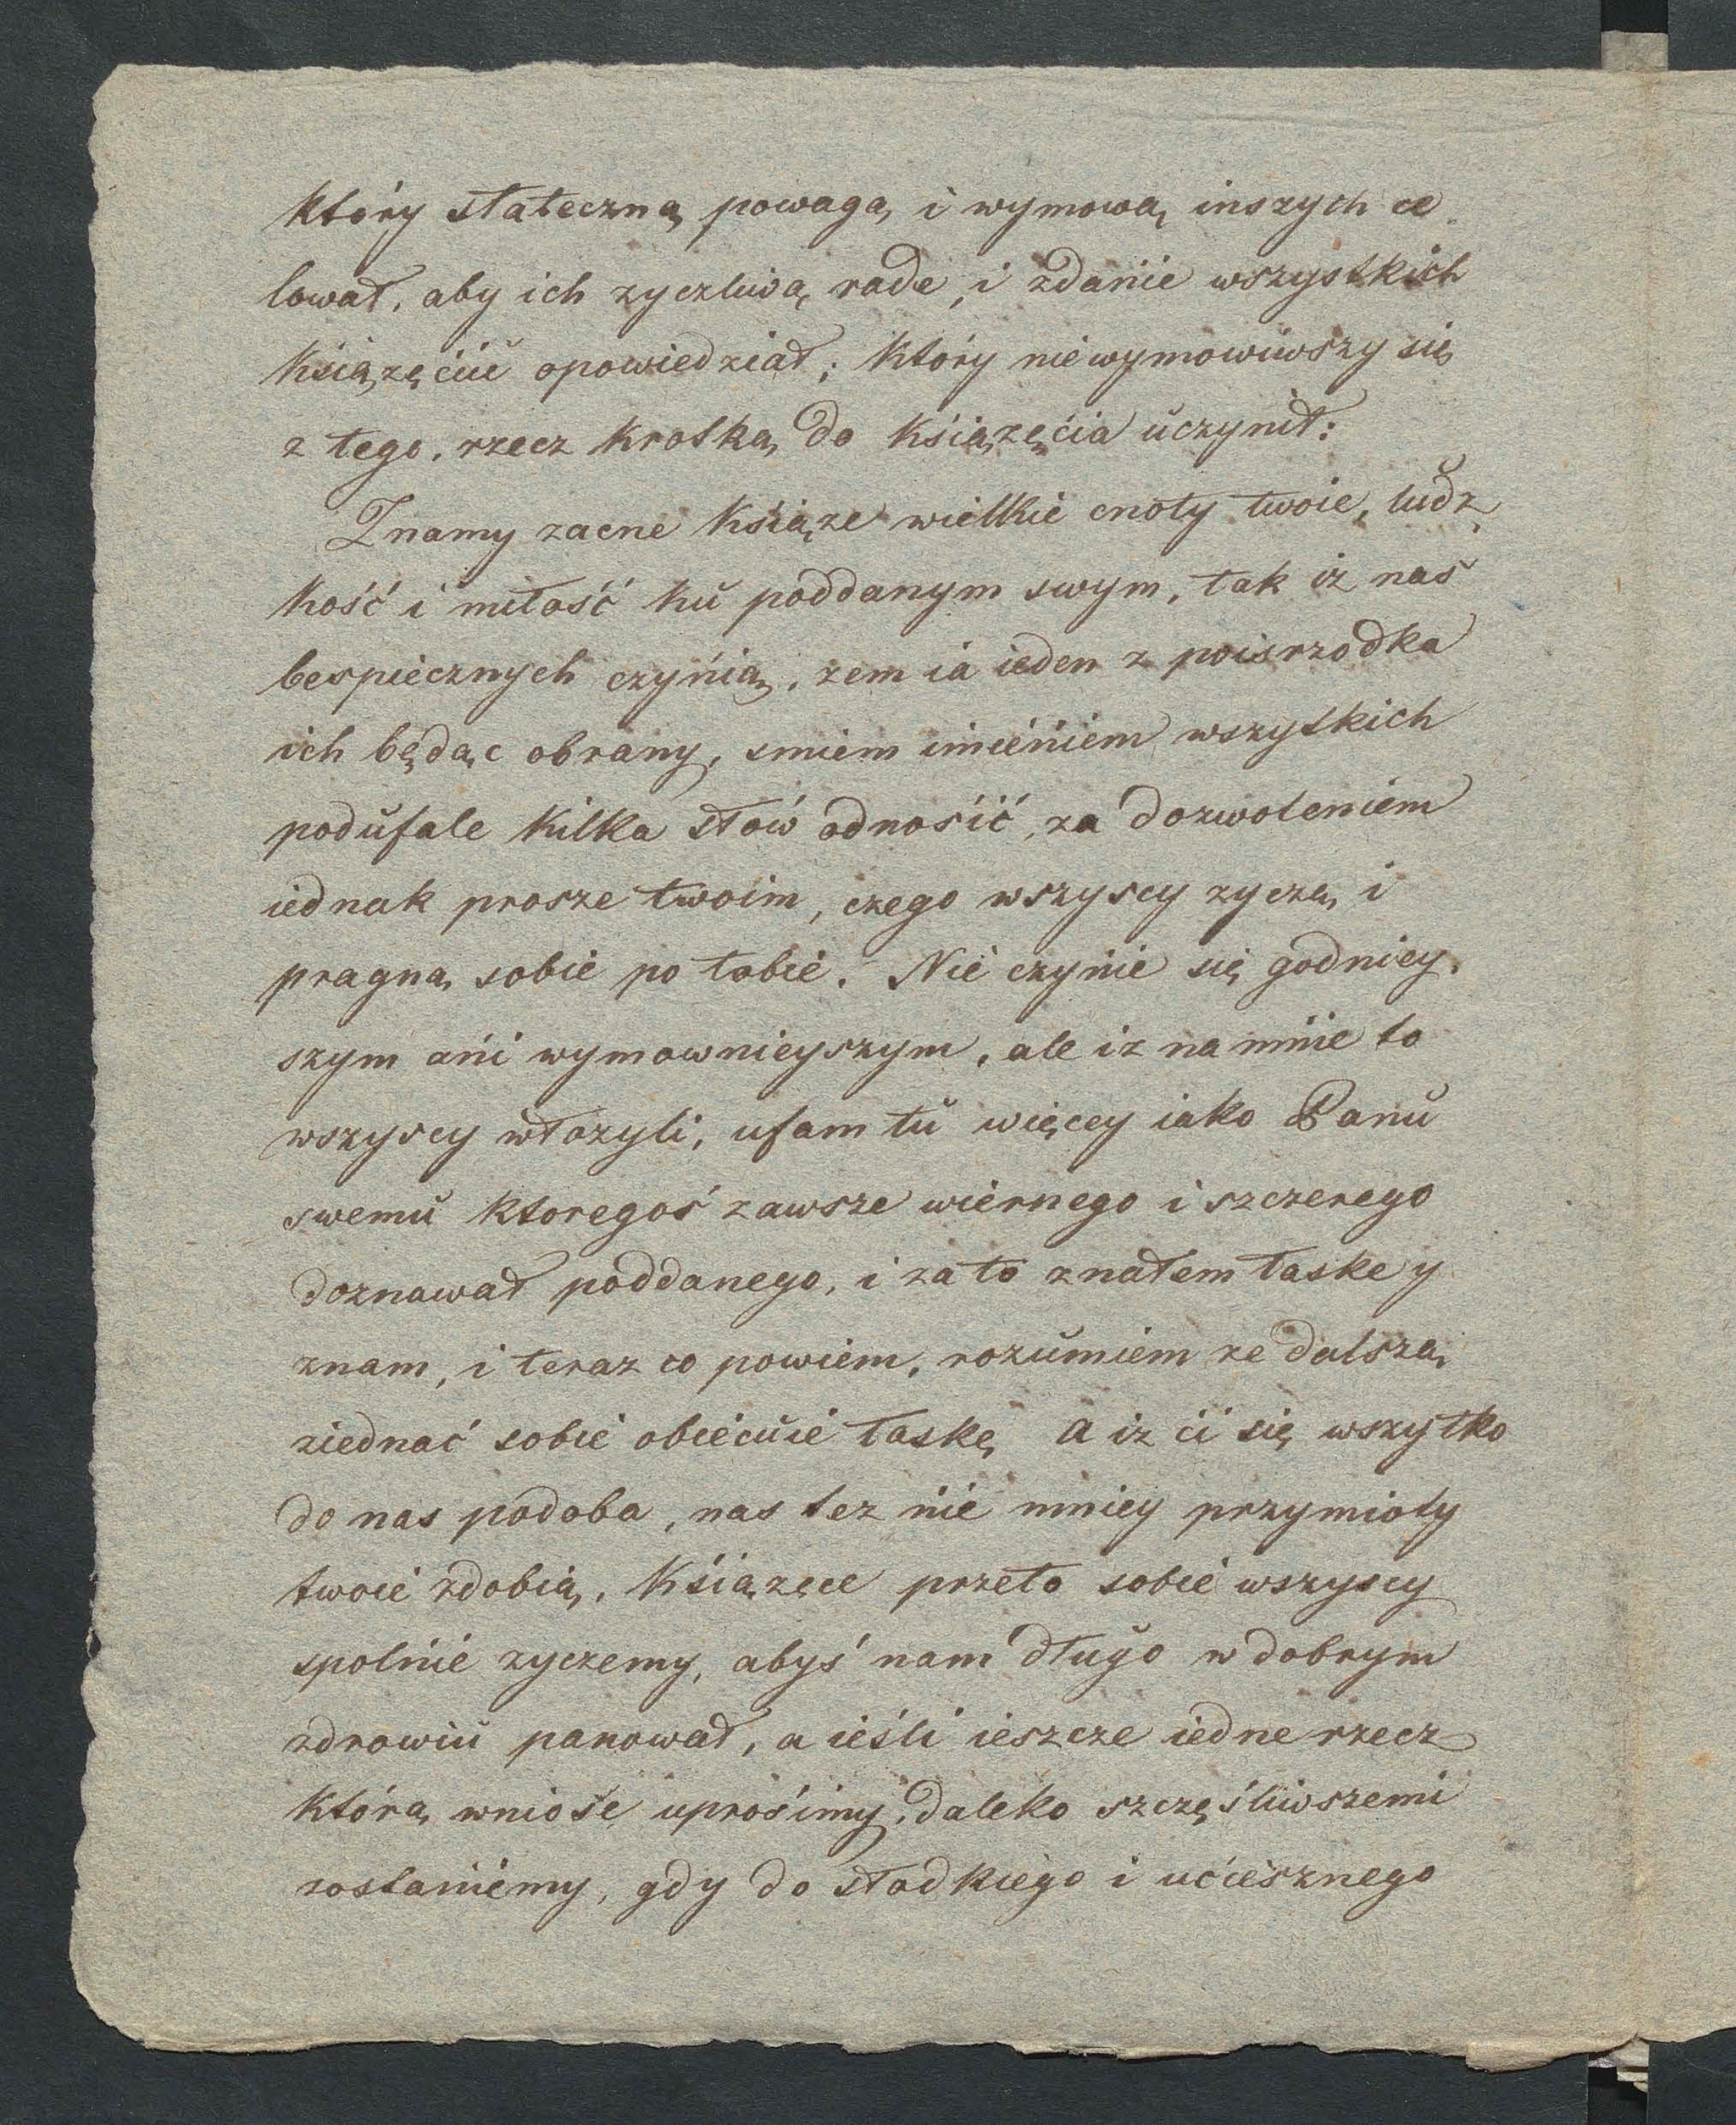 który stateczną powagą i wymową inszych ce
lował, aby ich zyczliwą rade, i zdanie wszystkich
Książęciu opowiedział; który nie wymowiwszy się
z tego, rzecz krotką do Książęcia uczynił:
Znamy zacne Książe wielkie cnoty twoie, ludz
kość i miłość ku poddanym swym, tak iz nas
bespiecznych czynią, zem ia ieden z poisrzodka
ich będąc obrany, smiem imieniem wszytkich
podufale kilka słow odnosić, za dozwoleniem
iednak prosze twoim, czego wszyscy zyczą i
pragną sobie po tobie. Nie czynie się godniey,
szym ani wymownieyszym, ale iz na mnie to
wszyscy włozyli, ufam tu więcey iako Panu
swemu ktoregoś zawsze wiernego i szczerego
doznawał poddanego, i za to znałem łaske y
znam, i teraz co powiem, rozumiem ze dalszą
ziednać sobie obiecuie łaskę, a iz ci się wszytko
do nas podoba, nas tez nie mniey przymioty
twoie zdobią, Książęce przeto sobie wszyscy
spolnie zyczemy, abyś nam długo w dobrym
zdrowiu panował, a ieśli ieszcze iedne rzecz
którą wniose uprosimy, daleko szczęśliwszemi
zostaniemy, gdy do słodkiego i uciesznego